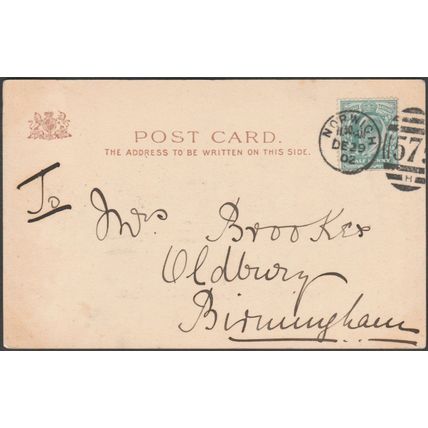 POST CARD.
THE ADDRESS TO BE WRITTEN ON THIS SIDE.
NORWICH
DE 29
02
575
H
To Mrs Brookes
Oldbury
Birmingham